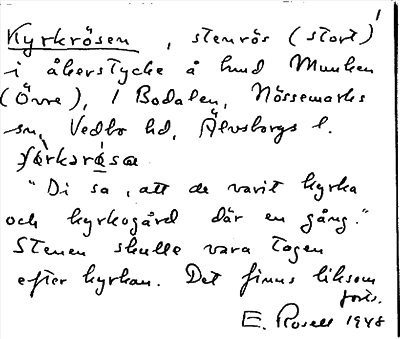 1
Kyrkrösen, stenrös (stort)
i åkerstycke å hmd Munken
(Övre), i Bodalen, Nössemarks
sn, Vedbo hd, Älvsborgs l.
"Di sa, att de varit kyrka
och kyrkogård där en gång."
Stenen skulle vara tagen
efter kyrkan. Det finns liksom
forts.
E. Rosell 1948